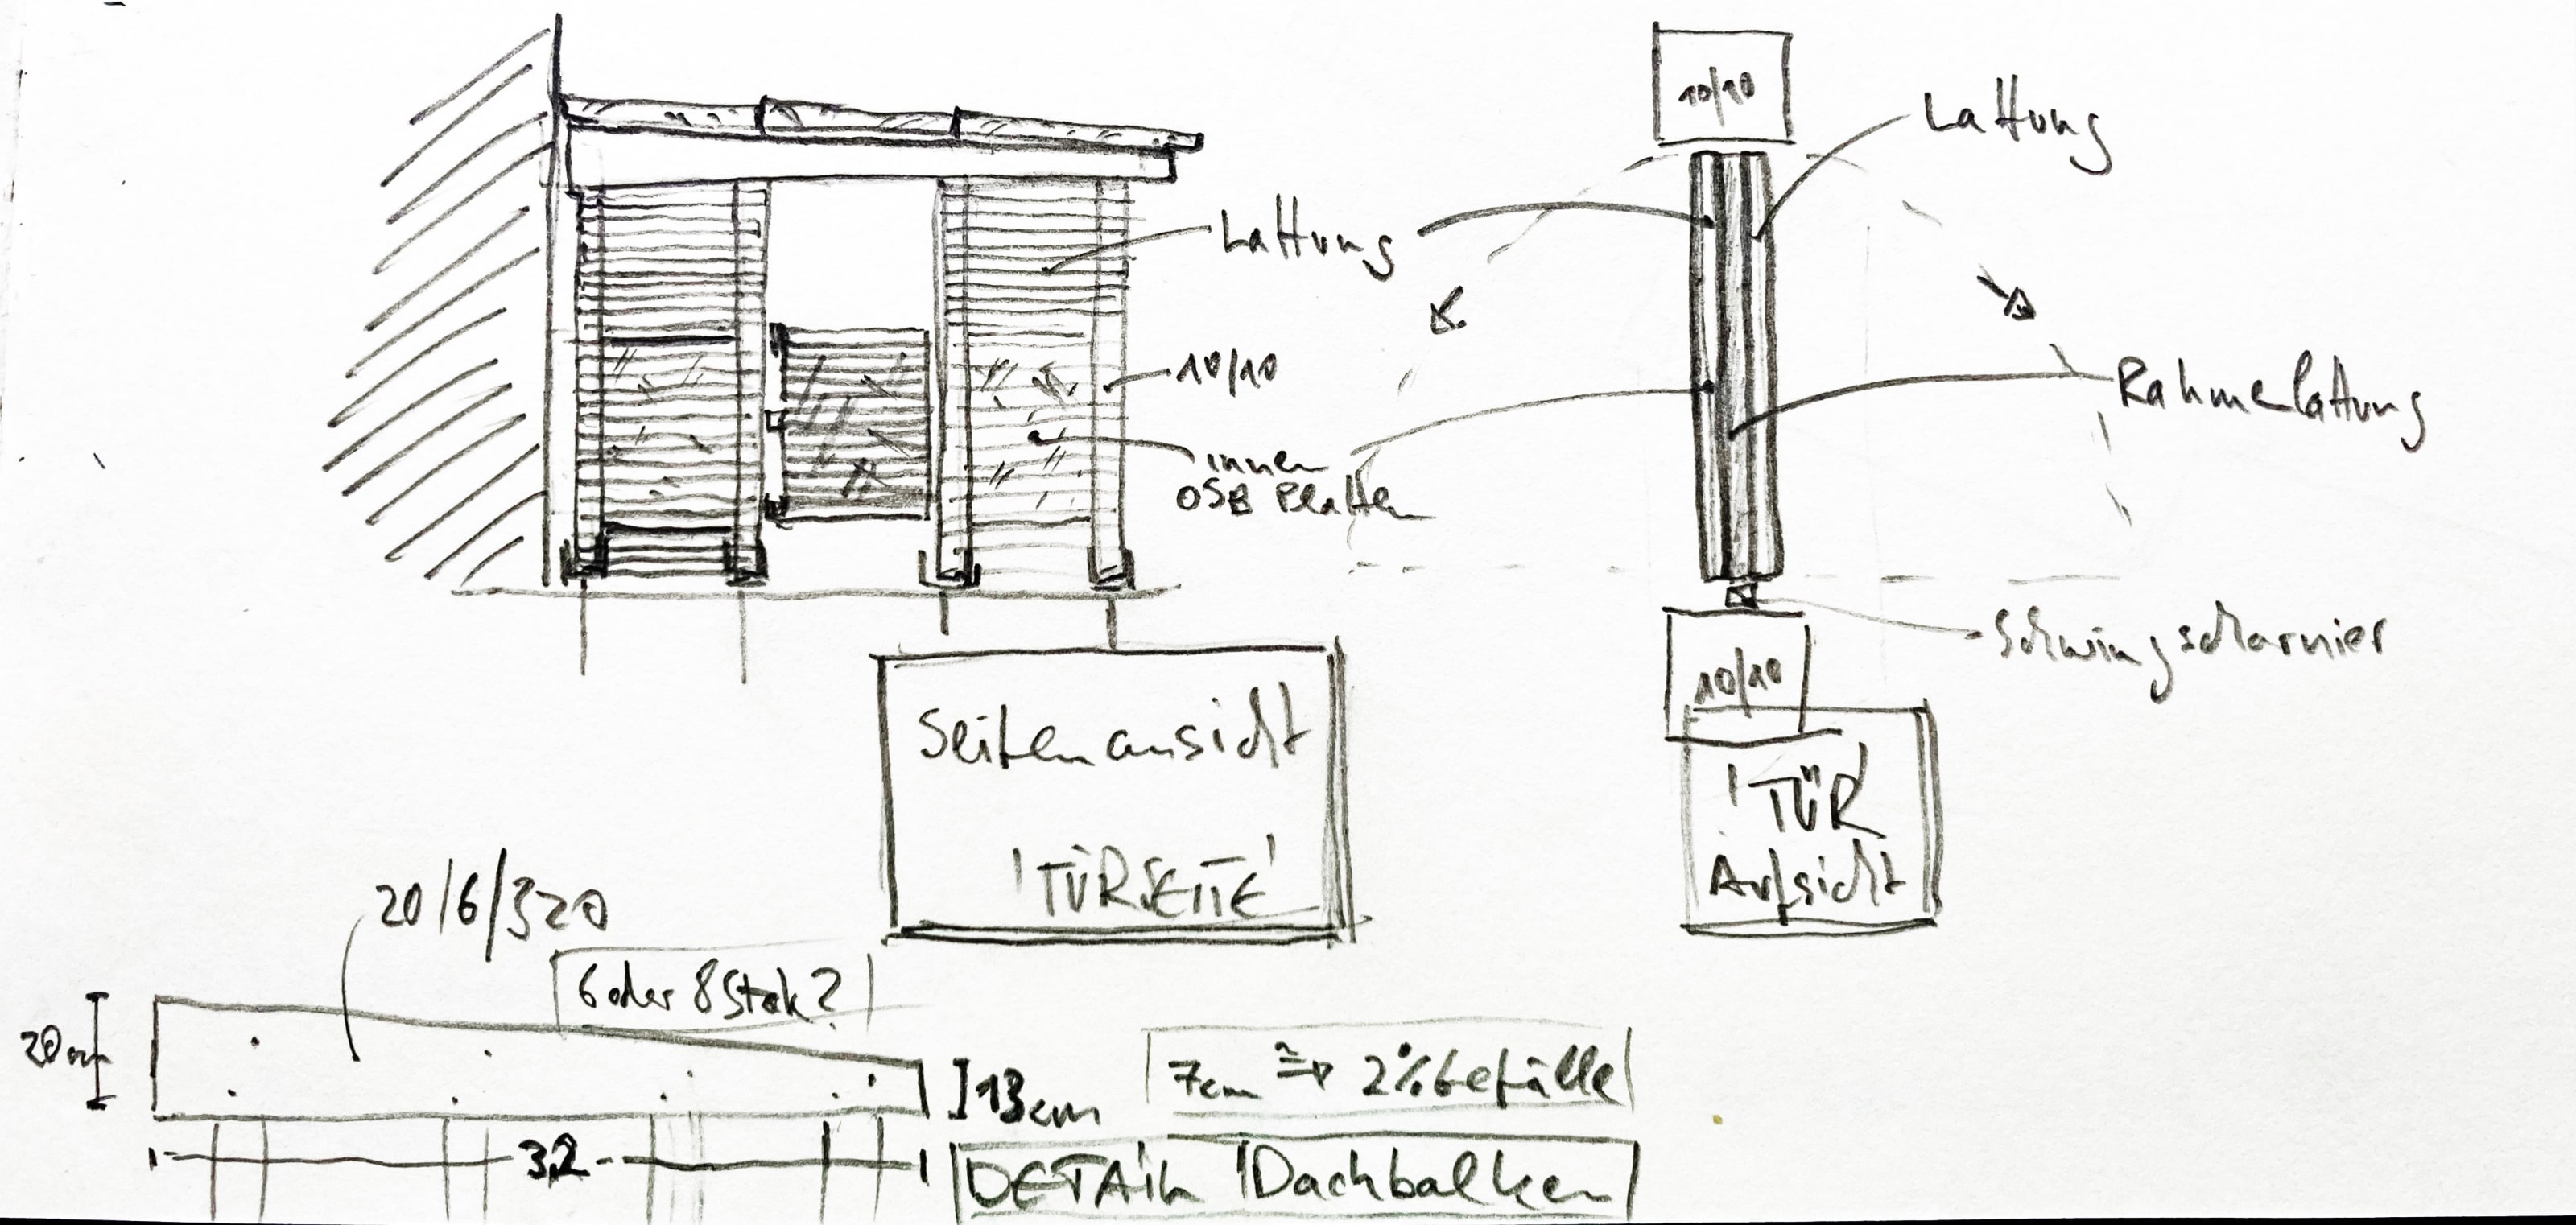 10/10
Lattung
Lattung
10/10
Rahmenlattung
innen
OSB Platten
Schwingscharnier
10/10
Seitenansicht
'TÜRSEITE'
'TÜR'
Aufsicht
20/6/320
6 oder 8 Stck?
20cm
13cm
7cm ≙> 2% Gefälle
3,2
DETAIL 'Dachbalken